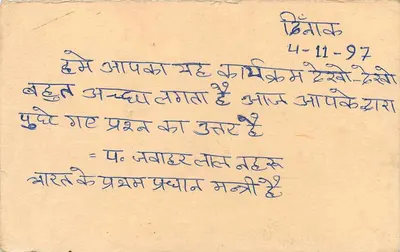 दिनाँक
4-11-97
हमे आपका यह कार्यक्रम देखो-देखो
बहुत अच्छा लगता है आज आपके द्वारा
पुछे गए प्रश्न का उत्तर है
= प. जवाहर लाल नेहरू
भारत के प्रथम प्रधान मन्त्री है